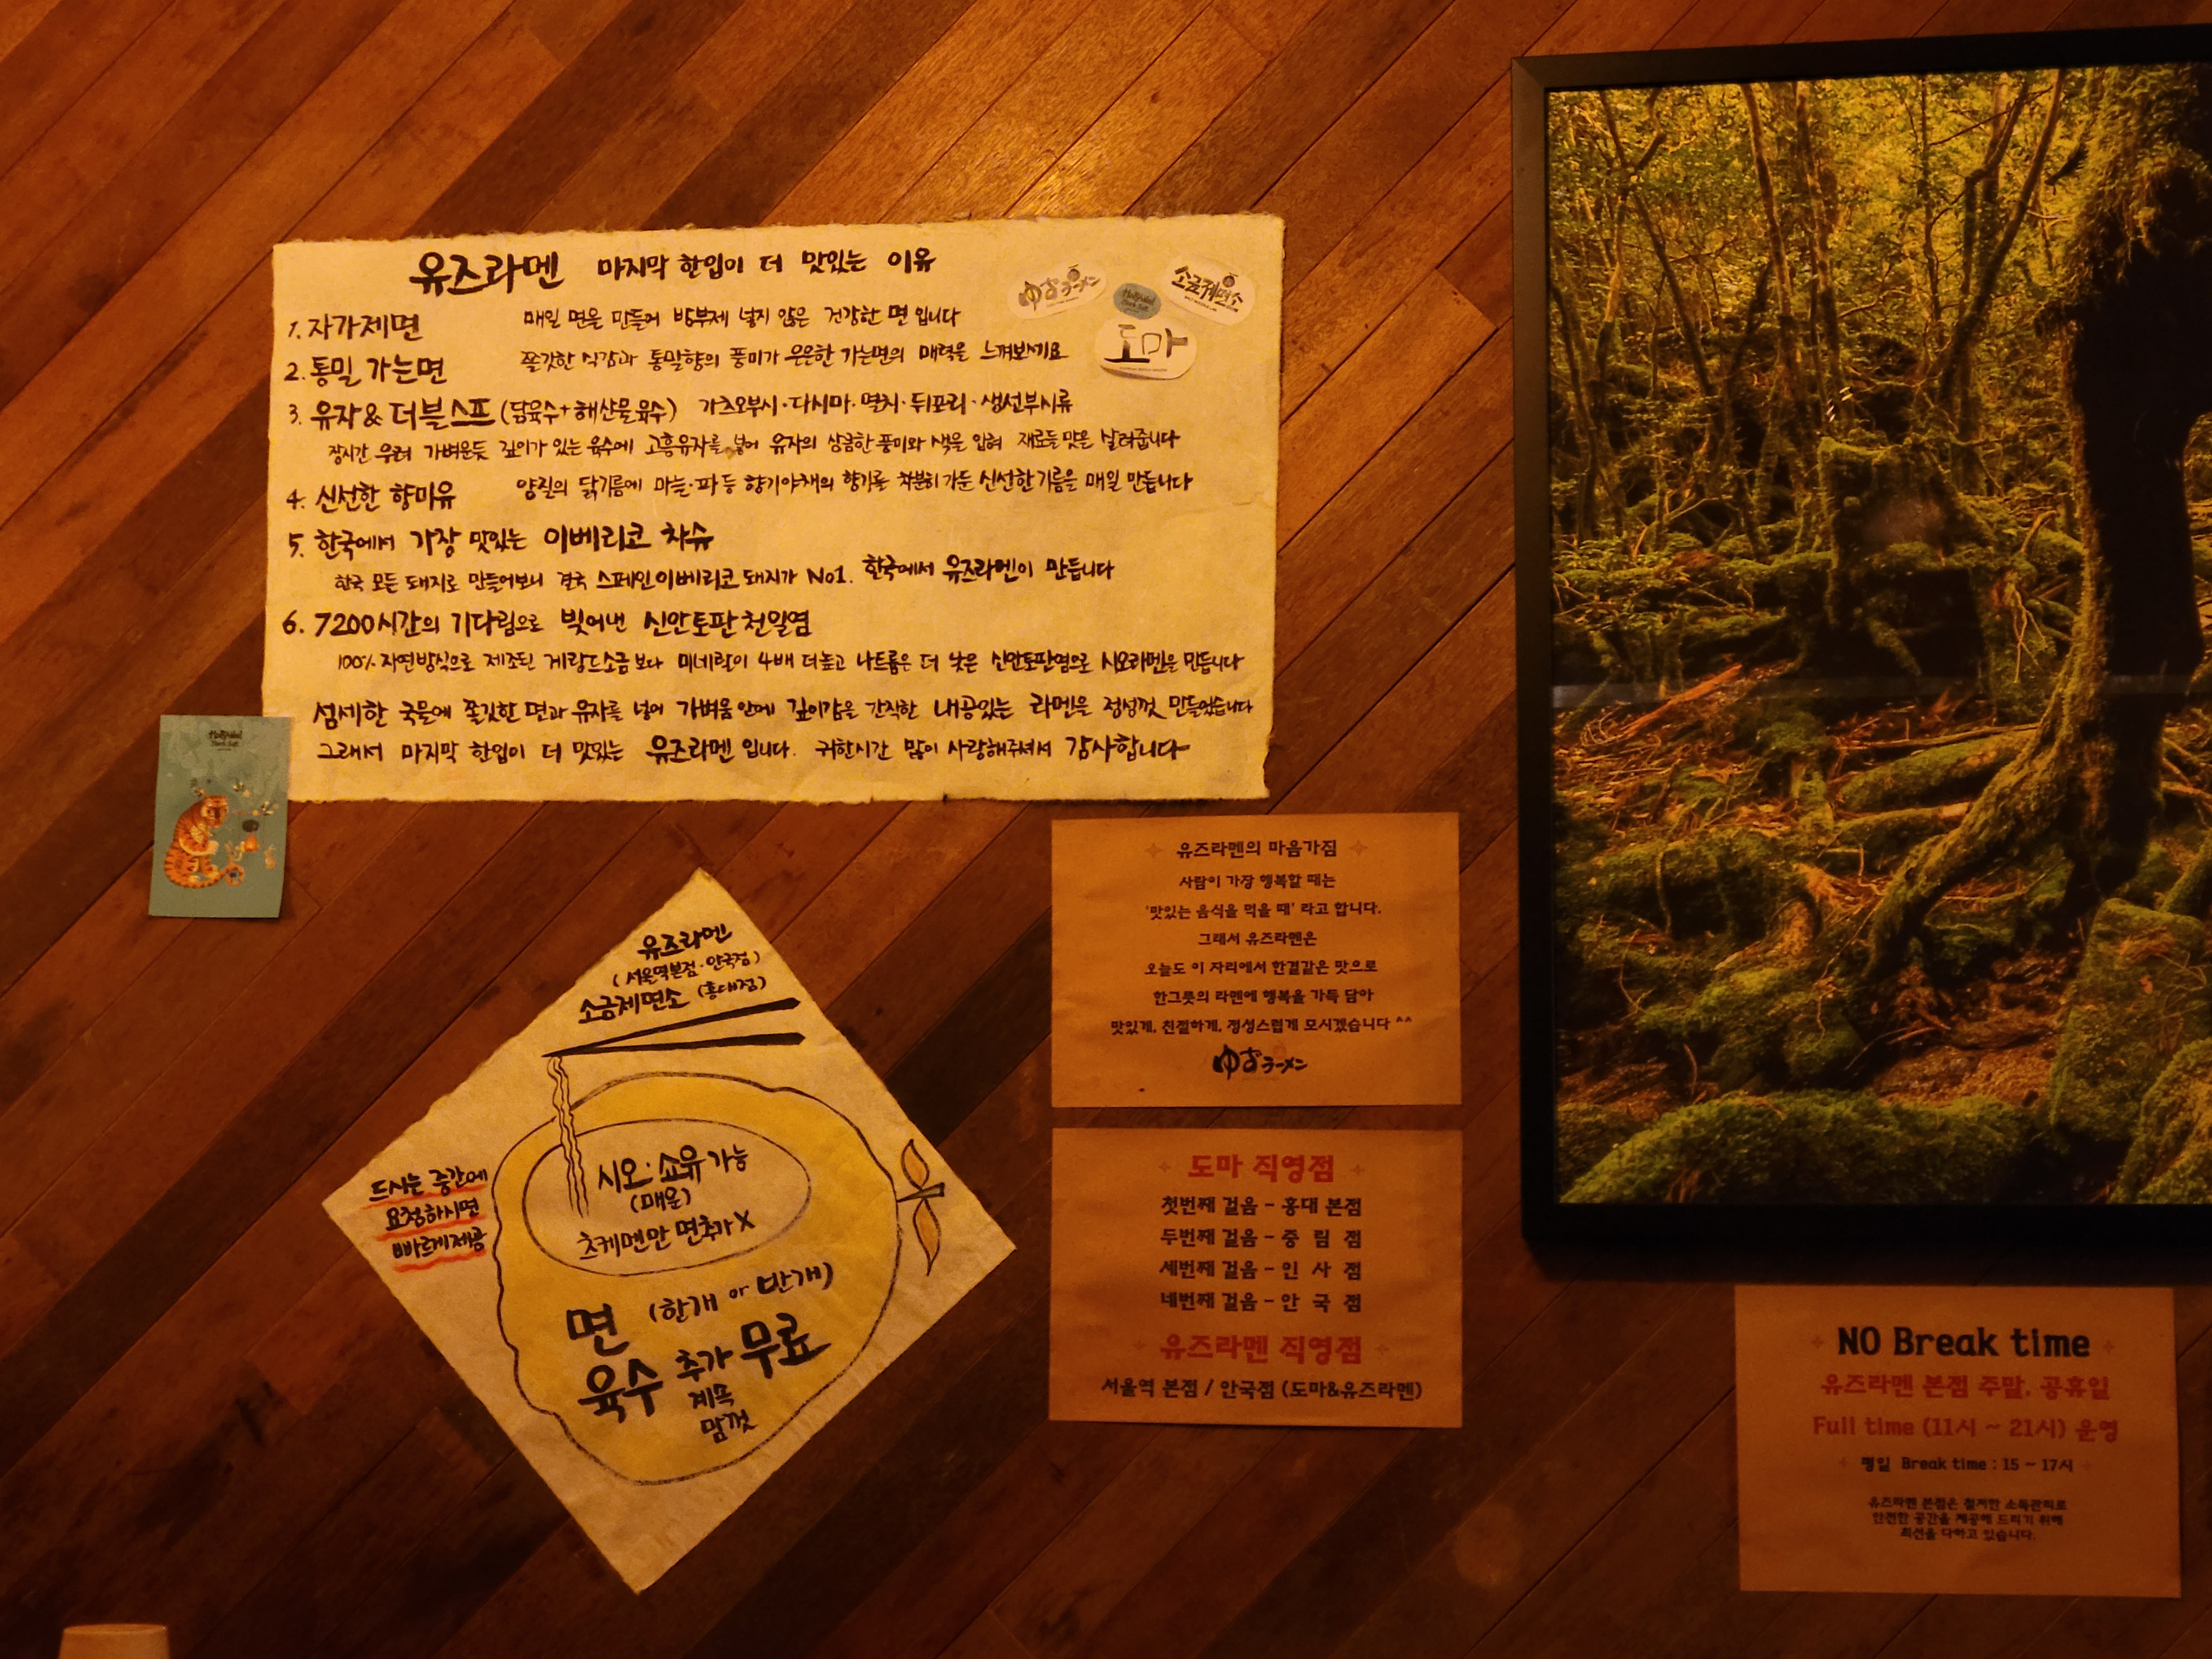 유즈라멘 마지막 한입이 더 맛있는 이유
ゆずラーメン
소금제면소
도마
1. 자가제면 매일 면을 만들어 방부제 넣지 않은 건강한 면 입니다
2. 통밀 가는면 쫄깃한 식감과 통밀향의 풍미가 은은한 가는면의 매력을 느껴보세요
3. 유자 & 더블스프 (닭육수+해산물육수) 가츠오부시·다시마·멸치·뒤포리·생선부시류
장시간 우려 가벼운듯 깊이가 있는 육수에 고흥유자를 넣어 유자의 상큼한 풍미와 색을 입혀 재료들맛은 살려줍니다
4. 신선한 향미유 양질의 닭기름에 마늘·파 등 향기야채의 향기를 차분히 가둔 신선한기름을 매일 만듭니다
5. 한국에서 가장 맛있는 이베리코 차슈
한국 모든 돼지로 만들어보니 결국 스페인이베리코 돼지가 No1. 한국에서 유즈라멘이 만듭니다
6. 7200시간의 기다림으로 빚어낸 신안토판천일염
100% 자연방식으로 제조된 게랑드소금 보다 미네랄이 4배 더높고 나트륨은 더 낮은 신안토판염으로 시오라멘을 만듭니다
섬세한 국물에 쫄깃한 면과 유자를 넣어 가벼움 안에 깊이감을 간직한 내공있는 라멘을 정성껏 만들었습니다
그래서 마지막 한입이 더 맛있는 유즈라멘 입니다. 귀한시간 많이 사랑해주셔서 감사합니다
유즈라멘
(서울역본점·안국점)
소금제면소 (홍대점)
드시는 중간에
요청하시면
빠르게제공
시오·쇼유 가능
(매운)
츠케멘만 면추가 X
면 (한개 or 반개)
육수 추가 무료
계속
맘껏
유즈라멘의 마음가짐
사람이 가장 행복할 때는
'맛있는 음식을 먹을 때' 라고 합니다.
그래서 유즈라멘은
오늘도 이 자리에서 한결같은 맛으로
한그릇의 라멘에 행복을 가득 담아
맛있게, 친절하게, 정성스럽게 모시겠습니다 ^^
ゆずラーメン
도마 직영점
첫번째 걸음 - 홍대 본점
두번째 걸음 - 중 림 점
세번째 걸음 - 인 사 점
네번째 걸음 - 안 국 점
유즈라멘 직영점
서울역 본점 / 안국점 (도마&유즈라멘)
NO Break time
유즈라멘 본점 주말, 공휴일
Full time (11시 ~ 21시) 운영
평일 Break time : 15 ~ 17시
유즈라멘 본점은 철저한 소독관리로
안전한 공간을 제공해 드리기 위해
최선을 다하고 있습니다.